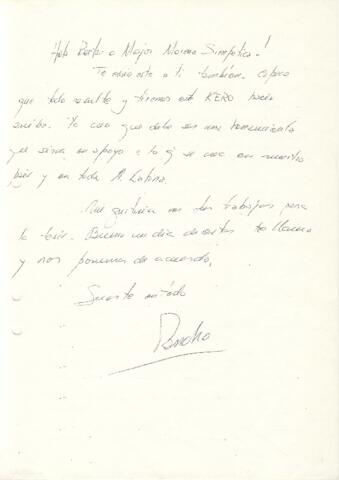 Hola Bertor o Mejor Norma Simpatica!
Te envio esto a ti tambien. espero
que todo resulte y tiremos este KERO hacia
arriba. Yo creo que debe ser una
que sirva en apoyo a lo q se vive en nuestro
país y en toda A. Latina.
Me gustaria ver los trabajos para
la tesis. Bueno un día de estos te llamo
y nos ponemos de acuerdo,
Suerte en todo
Pancho